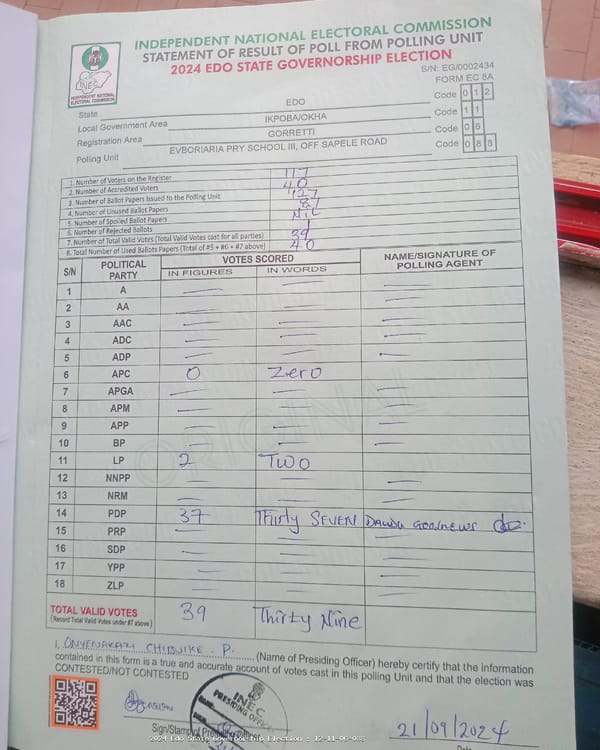 INDEPENDENT NATIONAL ELECTORAL COMMISSION
STATEMENT OF RESULT OF POLL FROM POLLING UNIT
2024 EDO STATE GOVERNORSHIP ELECTION
INEC
INDEPENDENT NATIONAL
ELECTORAL COMMISSION
S/N: EG/0002434
FORM EC 8A
State EDO Code 0 1 2
Local Government Area IKPOBA/OKHA Code 1 1
Registration Area GORRETTI Code 0 6
Polling Unit EVBORIARIA PRY SCHOOL III, OFF SAPELE ROAD Code 0 8 8
1. Number of Voters on the Register 117
2. Number of Accredited Voters 40
3. Number of Ballot Papers Issued to the Polling Unit
4. Number of Unused Ballot Papers
5. Number of Spoiled Ballot Papers Nil
6. Number of Rejected Ballots 1
7. Number of Total Valid Votes (Total Valid Votes cast for all parties) 39
8. Total Number of Used Ballots Papers (Total of #5 + #6 + #7 above) 40
S/N POLITICAL PARTY VOTES SCORED NAME/SIGNATURE OF POLLING AGENT
IN FIGURES IN WORDS
1 A
2 AA
3 AAC
4 ADC
5 ADP
6 APC 0 Zero
7 APGA
8 APM
9 APP
10 BP
11 LP 2 TWO
12 NNPP
13 NRM
14 PDP 37 Thirty SEVEN DAWDU GOODNEWS
15 PRP
16 SDP
17 YPP
18 ZLP
ORIGINAL
TOTAL VALID VOTES 39 Thirty Nine
(Record Total Valid Votes under #7 above)
I, ONYENAKAZI CHIDINIKE . P. (Name of Presiding Officer) hereby certify that the information
contained in this form is a true and accurate account of votes cast in this polling Unit and that the election was
CONTESTED/NOT CONTESTED
INEC
PRESIDING OFFICER
Sign/Stamp of Presiding Officer
21/09/2024
Date
2024 Edo State Governorship Election : 12-11-06-088